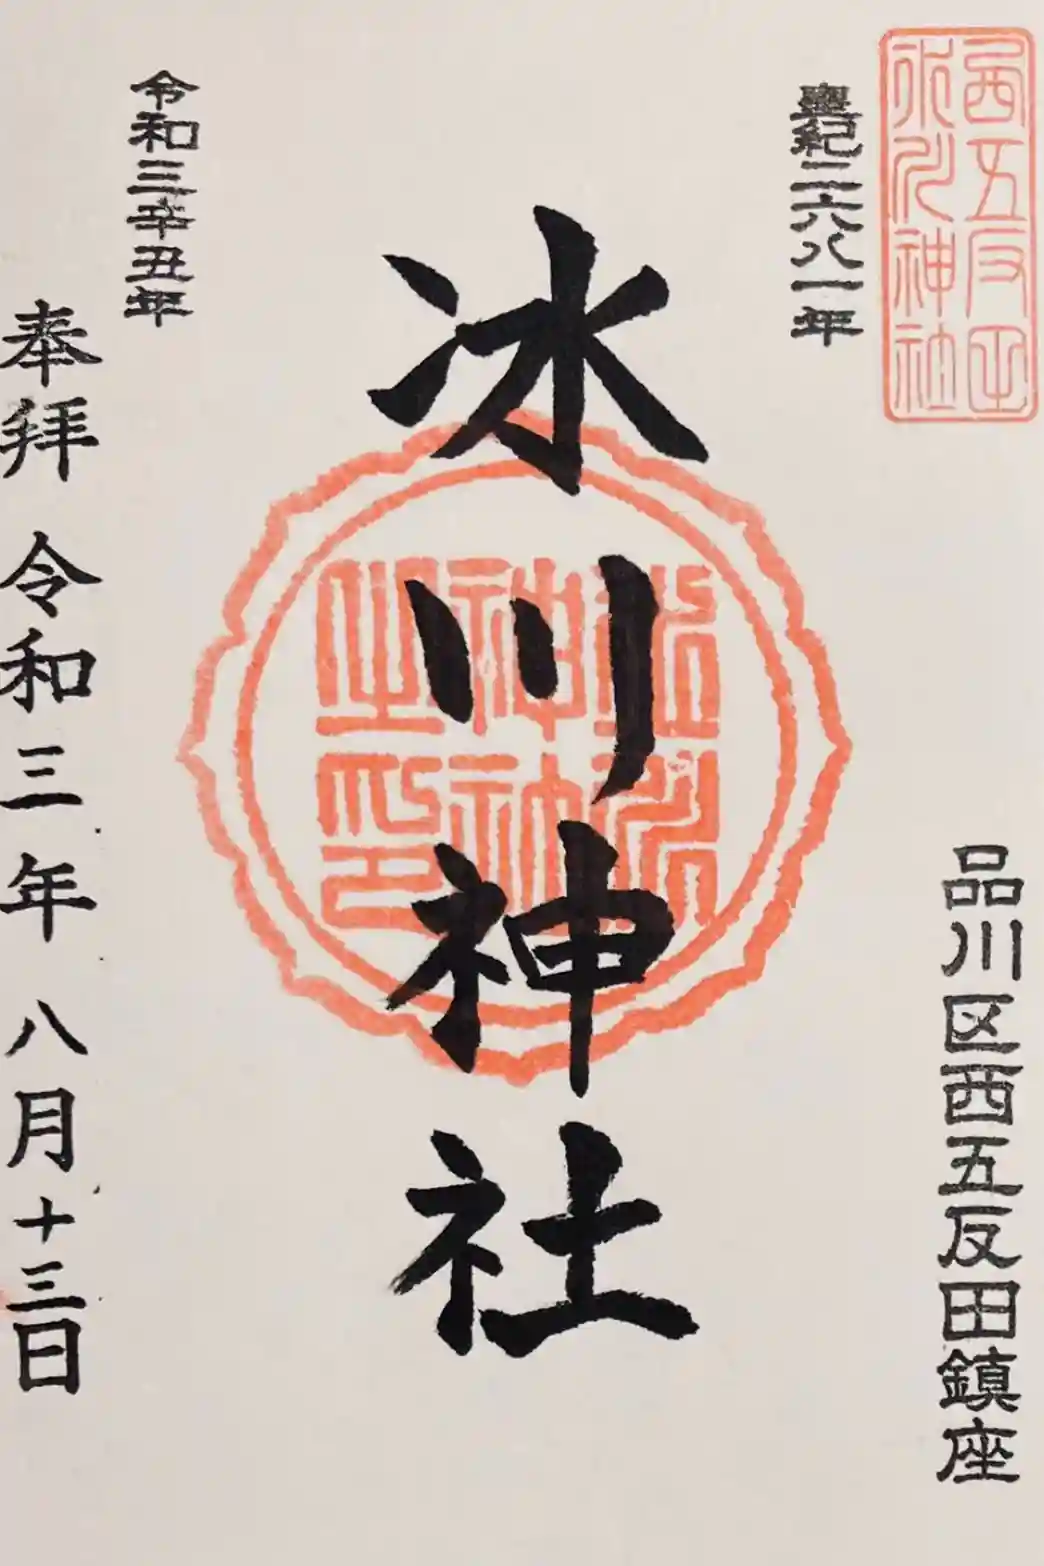 西五反田
冰川神社
皇紀二六八一年
品川区西五反田鎮座
冰川神社
冰川
神社
之印
令和三辛丑年
奉拝 令和三年 八月十三日